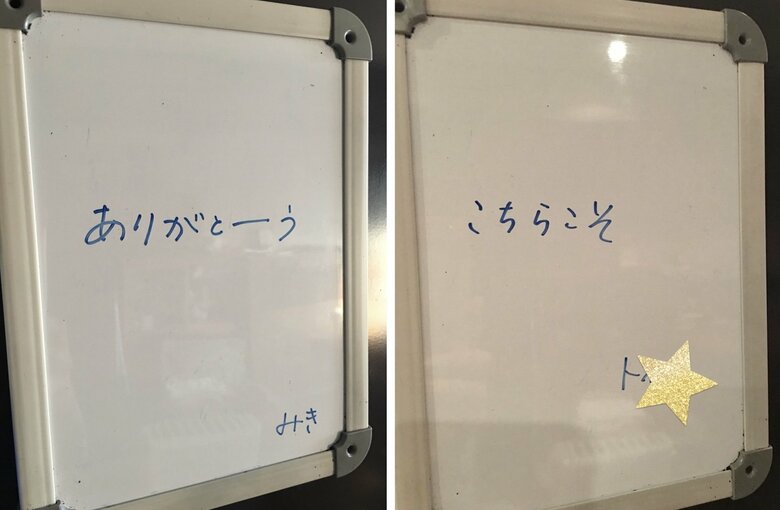 ありがとーう
みき
こちらこそ
ト